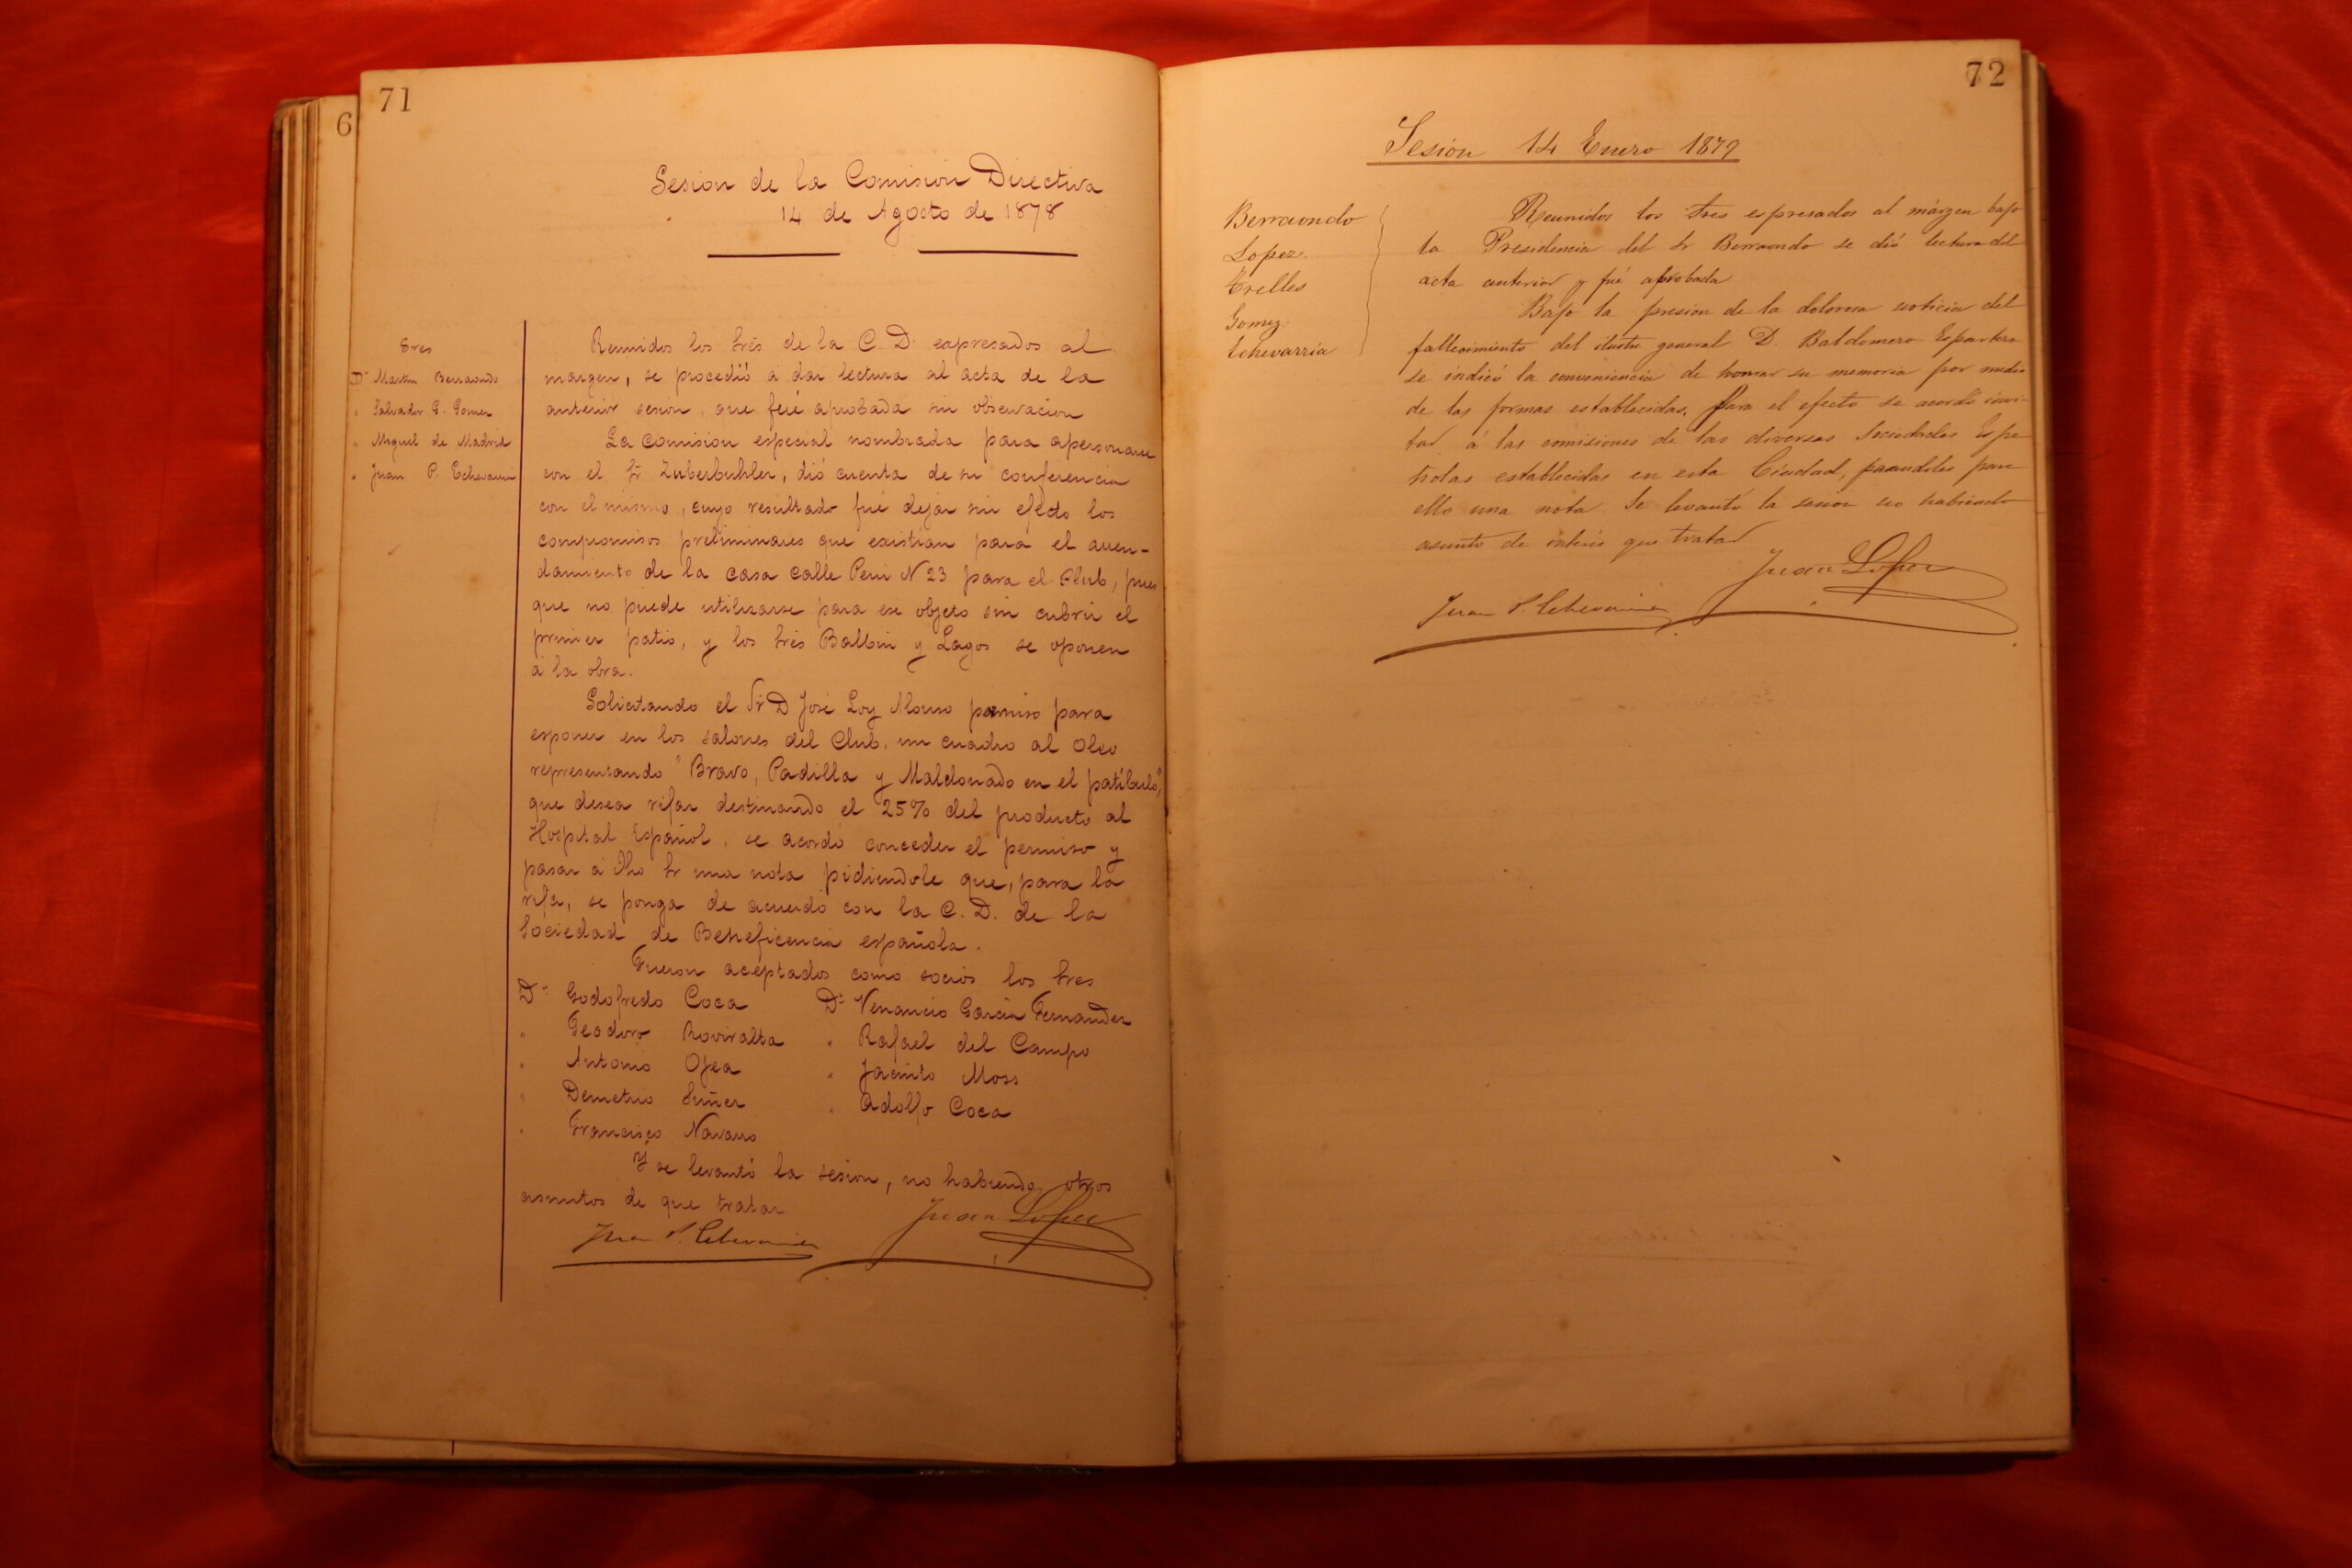 6
71
Sesion de la Comision Directiva
14 de Agosto de 1878
Sres
Dn Martin Berraondo
" Salvador G. Gomez
" Miguel de Madrid
" Juan P. Echevarria
Reunidos los Sres de la C. D. expresados al
margen, se procedió a dar lectura al acta de la
anterior sesion, que fué aprobada sin observacion
La comision especial nombrada para apersonarse
con el Sr Zuberbuhler, dió cuenta de su conferencia
con el mismo, cuyo resultado fué dejar sin efecto los
compromisos preliminares que existian para el arren-
damiento de la casa calle Perú N 23 para el Club, pues
que no puede utilizarse para ese objeto sin cubrir el
primer patio, y los Sres Balbin y Lagos se oponen
á la obra.
Solicitando el Sr D José Loy Alonso permiso para
exponer en los salones del Club, un cuadro al oleo
representando "Bravo, Padilla y Maldonado en el patíbulo",
que desea rifar destinando el 25% del producto al
Hospital Español, se acordó conceder el permiso y
pasar á dho Sr una nota pidiendole que, para la
rifa, se ponga de acuerdo con la C. D. de la
Sociedad de Beneficencia española.
Fueron aceptados como socios los Sres
Dn Godofredo Coca Dn Venancio Garcia Fernandez
" Teodoro Roviralta " Rafael del Campo
" Antonio Ojea " Jacinto Moss
" Demetrio Suñer " Adolfo Coca
" Francisco Navarro
Y se levantó la sesion, no habiendo otros
asuntos de que tratar
Juan P. Echevarria Juan Lopez
72
Sesion 14 Enero 1879
Berraondo
Lopez.
Trelles
Gomez.
Echevarria
Reunidos los Sres espresados al márgen bajo
la Presidencia del Sr Berraondo se dió lectura del
acta anterior y fué aprobada
Bajo la presion de la dolorosa noticia del
fallecimiento del ilustre general D. Baldomero Espartero
se indicó la conveniencia de honrar su memoria por medio
de las formas establecidas. Para el efecto se acordó invi-
tar á las comisiones de las diversas Sociedades Espa-
ñolas establecidas en esta Ciudad, pasandoles para
ello una nota. Se levantó la sesion no habiendo
asunto de interés que tratar
Juan Lopez
Juan P. Echevarria